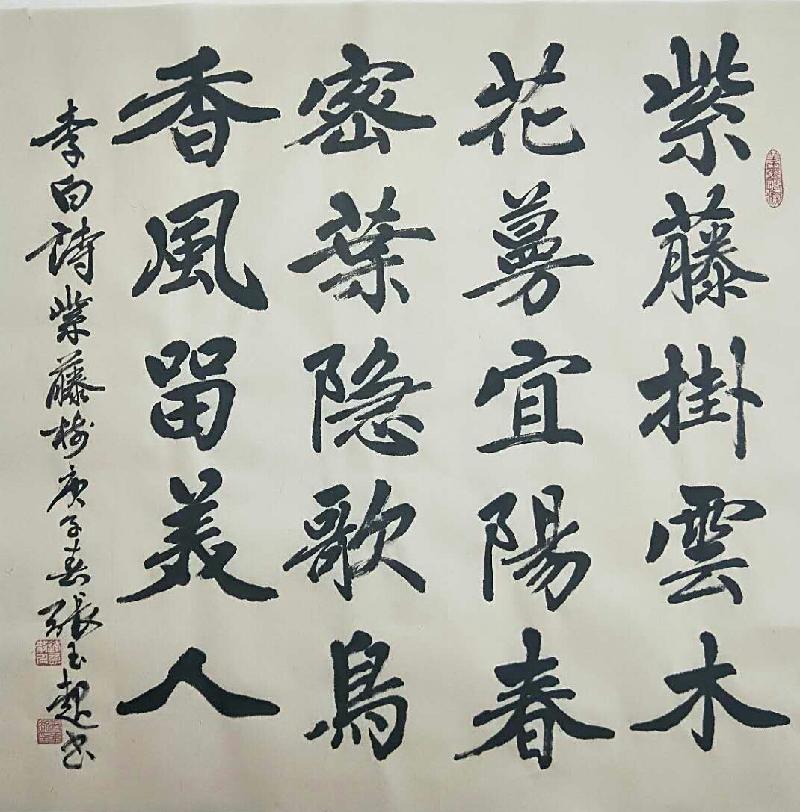 紫藤掛雲木
花蔓宜陽春
密葉隐歌鳥
香風留美人
李白詩紫藤樹庚子春張玉超书